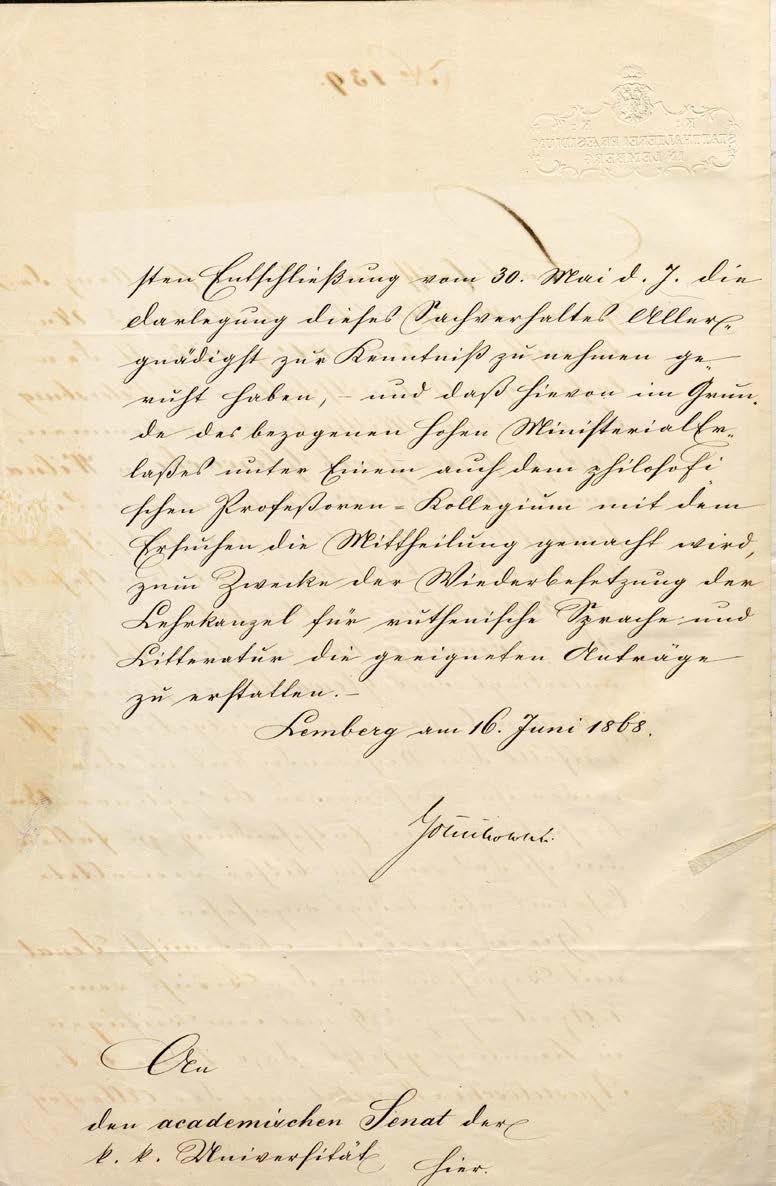 sten Entschließung vom 30. Mai d. J. die
Darlegung dieses Sachverhaltes Aller-
gnädigst zur Kenntniß zu nehmen ge-
ruht haben, – und daß hievon im Grun-
de des bezogenen hohen Ministerial Er-
laßes unter Einem auch dem philosofi
schen Profeßoren-Kollegium mit dem
Ersuchen die Mittheilung gemacht wird,
zum Zwecke der Wiederbesetzung der
Lehrkanzel für ruthenische Sprache und
Litteratur die geeigneten Anträge
zu erstatten. –
Lemberg am 16. Juni 1868.
An
den academischen Senat der
k. k. Universität
hier.